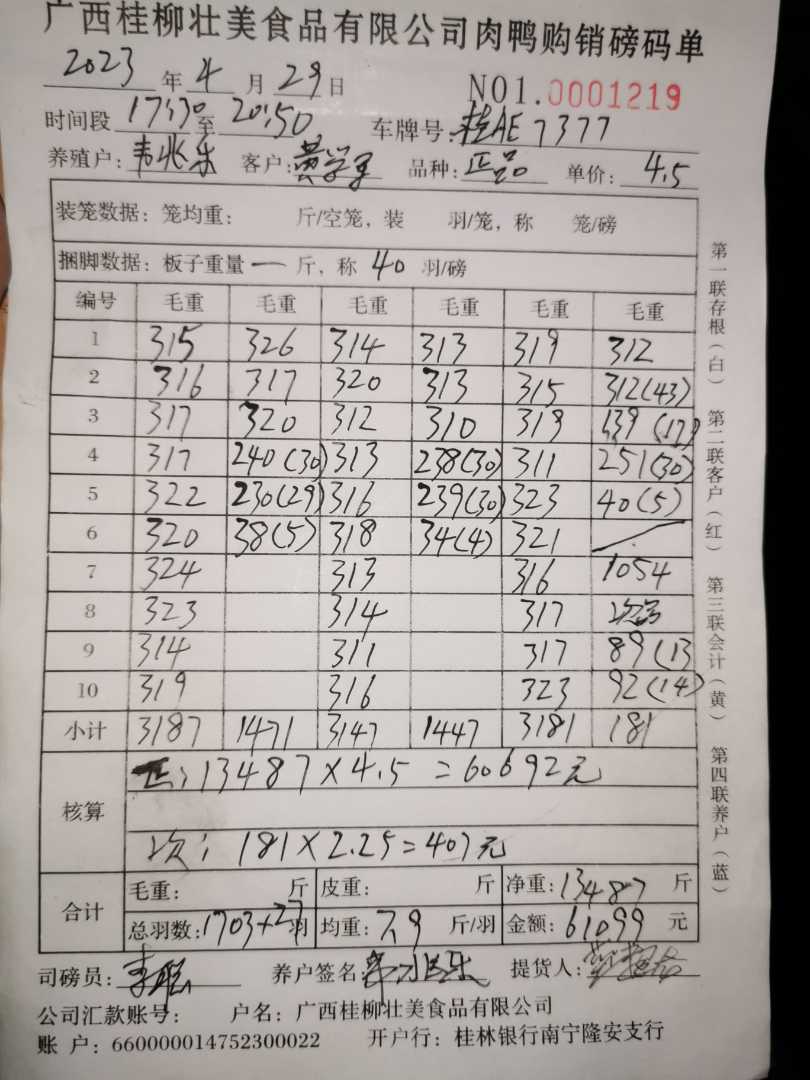 广西桂柳壮美食品有限公司肉鸭购销磅码单
2023 年 4 月 29 日 NO1.0001219
时间段 17:30 至 20:50 车牌号: 桂AE7377
养殖户: 韦兆乐 客户: 黄学军 品种: 正品 单价: 4.5
装笼数据: 笼均重: 斤/空笼, 装 羽/笼, 称 笼/磅
捆脚数据: 板子重量 一 斤, 称 40 羽/磅
编号 毛重 毛重 毛重 毛重 毛重 毛重
1 315 326 314 313 319 312
2 316 317 320 313 315 312(43)
3 317 320 312 310 319 139(17)
4 317 240(30) 313 238(30) 311 251(30)
5 322 230(29) 316 239(30) 323 40(5)
6 320 38(5) 318 34(4) 321
7 324 313 316 1054
8 323 314 317 次
9 314 311 317 89(13
10 319 316 323 92(14)
小计 3187 1471 3147 1447 3181 181
核算
正: 13487×4.5=60692元
次: 181×2.25=407元
合计
毛重: 斤 皮重: 斤 净重: 13487 斤
总羽数: 1703+27 羽 均重: 7.9 斤/羽 金额: 61099 元
司磅员: 养户签名: 韦兆乐 提货人:
公司汇款账号: 户名: 广西桂柳壮美食品有限公司
账 户: 660000014752300022 开户行: 桂林银行南宁隆安支行
第一联存根(白) 第二联客户(红) 第三联会计(黄) 第四联养户(蓝)